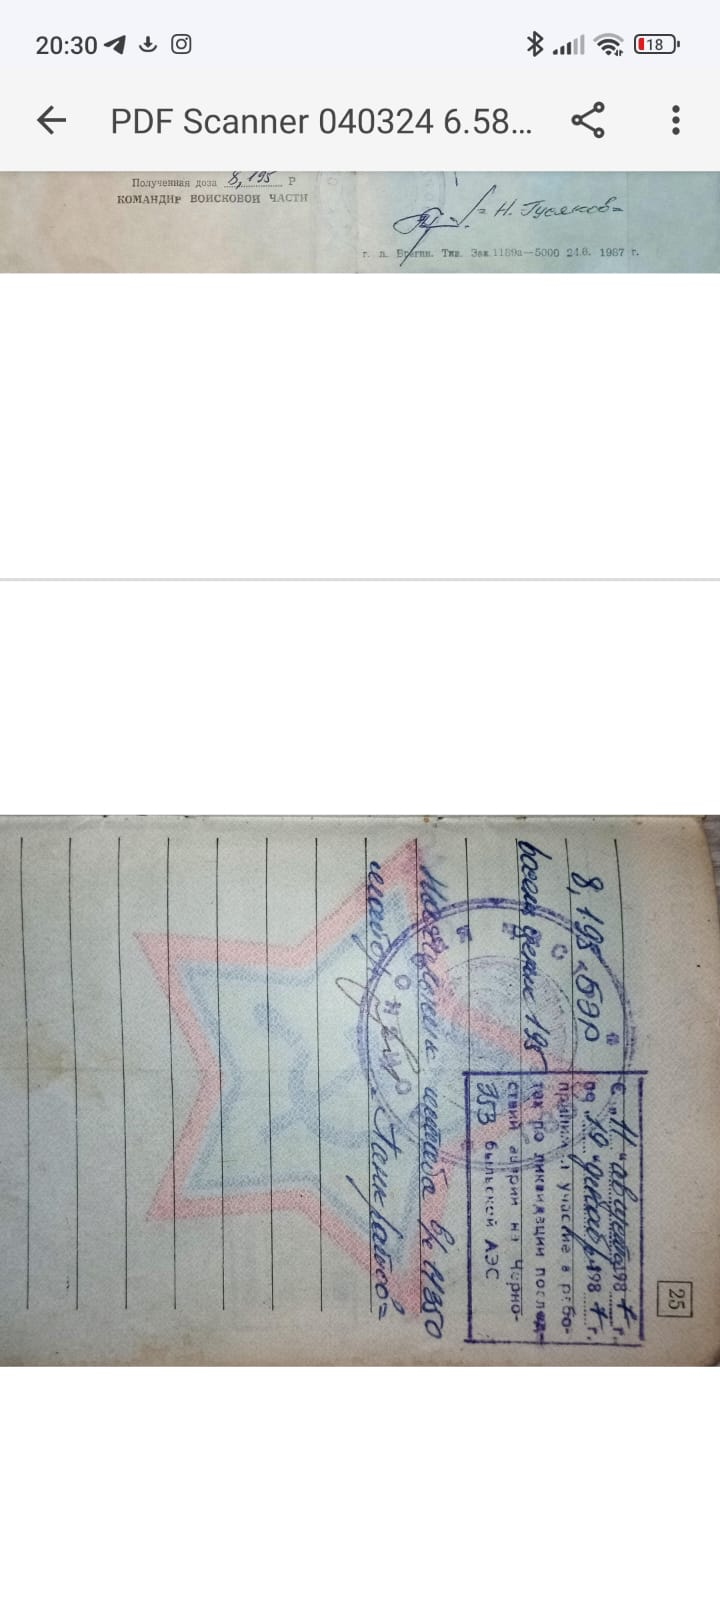 20:30
18
PDF Scanner 040324 6.58...
Полученная доза 8,195 Р
КОМАНДИР ВОИСКОВОИ ЧАСТИ
Н. Гусаков
г. п. Брагин. Тип. Зак. 1189а—5000 24.6. 1987 г.
25
с „11" августа 1987 г.
до „19" октября 1987 г.
принимал участие в рабо-
тах по ликвидации послед-
ствий аварии на Черно-
быльской АЭС
8,195 БЭР
восемь целых 195
ЗБЗ
штаба в/ч 11350
майор